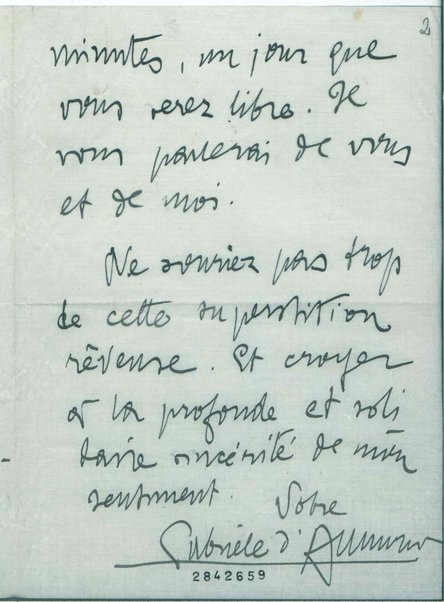 2
minutes, un jour que
vous serez libre. Je
vous parlerai de vous
et de moi.
Ne souriez pas trop
de cette superstition
rêveuse. Et croyez
à la profonde et soli
taire sincérité de mon
sentiment.
Votre
Gabriele d'Annunzio
2842659